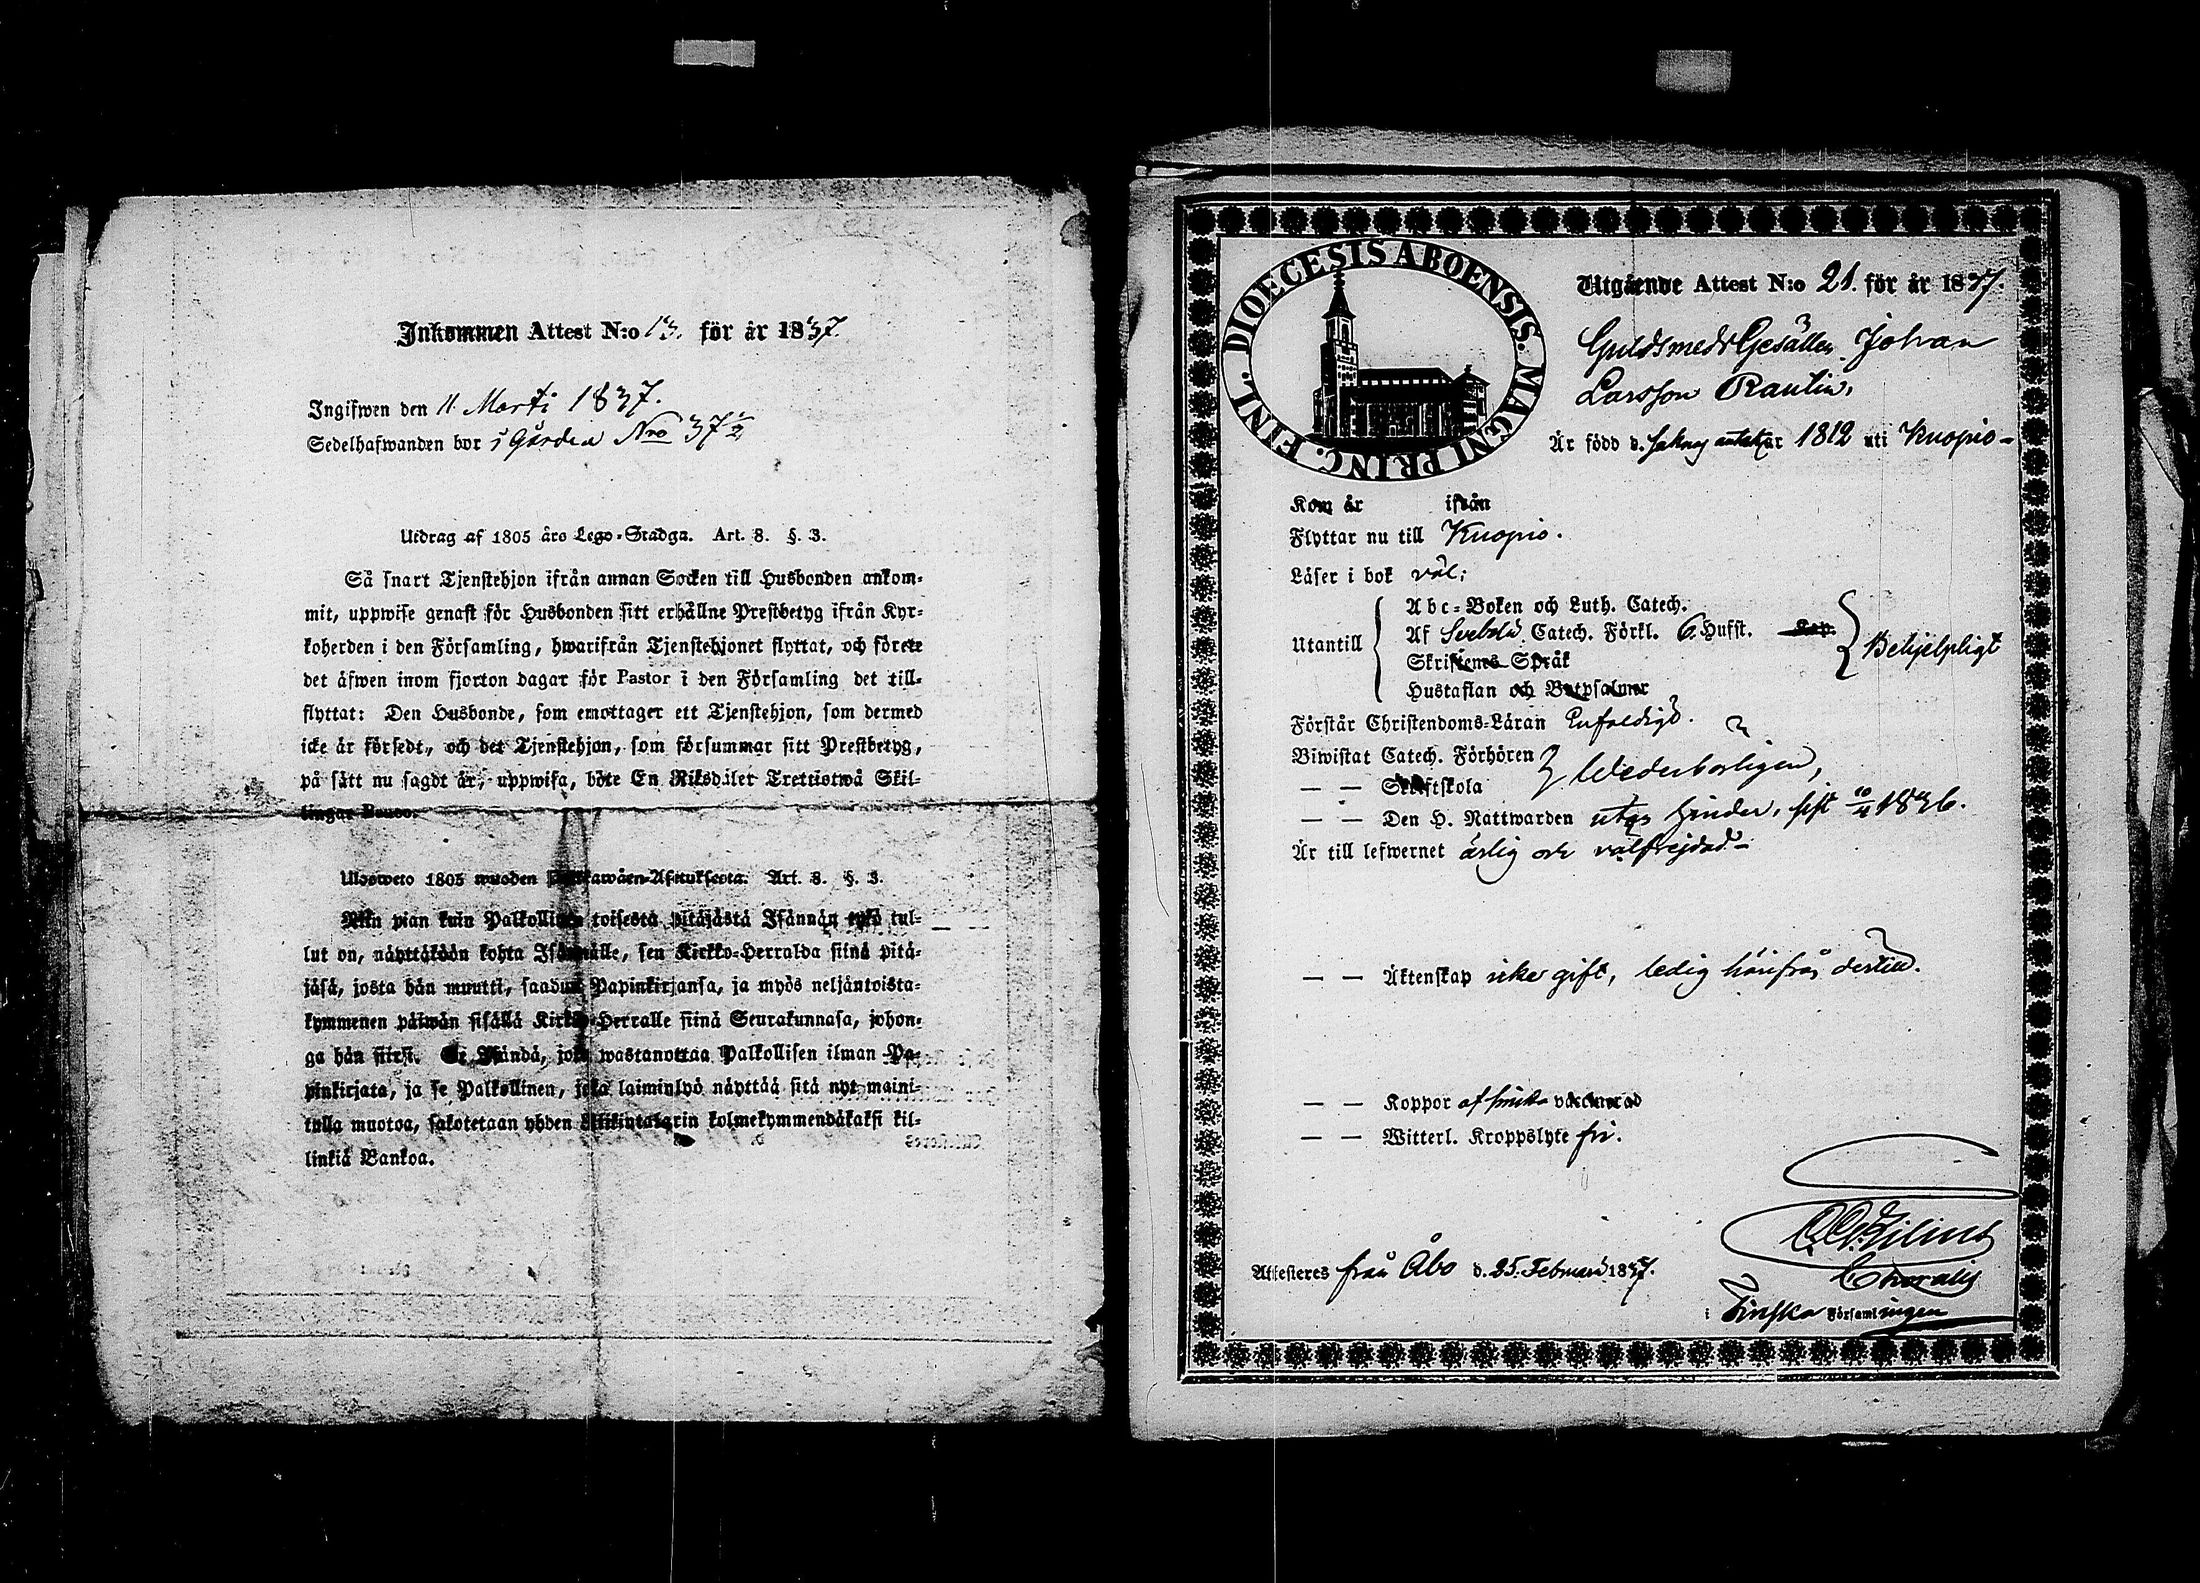 Inkommen Attest N:o 13. för år 1837.
Ingifwen den 11 Marti 1837.
Sedelhafwanden bor i Gården Nro 37 1/2
Utdrag af 1805 års Lego-Stadga. Art. 8. §. 3.
Så snart Tjenstehjon ifrån annan Socken till Husbonden ankom-
mit, uppwise genast för Husbonden sitt erhållne Prestbetyg ifrån Kyr-
koherden i den Församling, hwarifrån Tjenstehjonet flyttat, och förete
det äfwen inom fjorton dagar för Pastor i den Församling det till-
flyttat: Den Husbonde, som emottager ett Tjenstehjon, som dermed
icke är försedt, och det Tjenstehjon, som försummar sitt Prestbetyg,
på sätt nu sagdt är, uppwisa, böte En Riksdaler Trettiotwå Skil-
lingar Banco.
Ulosweto 1805 wuoden Asetuksesta. Art. 8. §. 3.
Niin pian kuin Palkollinen toisesta pitäjästä Isännän tykö tul-
lut on, näyttäköön kohta Isännälle, sen Kirkko-Herralda siinä pitä-
jäsä, josta hän muutti, saadun Papinkirjansa, ja myös neljäntoista-
kymmenen päiwän sisällä Kirkko-Herralle siinä Seurakunnasa, johon-
ga hän siirsi. Se Isändä, joka wastanottaa Palkollisen ilman Pa-
pinkirjata, ja se Palkollinen, joka laiminlyö näyttää sitä nyt maini-
tulla muotoa, sakotetaan yhden Riikintalarin kolmekymmendäkaksi kil-
linkiä Bankoa.
DIOECESIS ABOENSIS. MAGNI PRINC. FINL.
Utgående Attest N:o 21. för år 1837.
Guldsmeds Gesällen Johan
Larsson Rautin,
Är född d. år 1812 uti Kuopio
Kom år ifrån
Flyttar nu till Kuopio.
Läser i bok väl;
Abc-Boken och Luth. Catech.
Utantill Af Svebelii Catech. Förkl. 6. Hufst. Kap. Behjelpligt
Skriftenes Språk
Hustaflan och Botpsalmer
Förstår Christendoms-Läran Enfaldigt.
Biwistat Catech. Förhören
— — Skriftskola Wederborligen,
— — Den H. Nattwarden utan hinder, sist 10/4 1836.
Är till lefwernet ärlig och välfrejdad
— — Äktenskap icke gift, ledig härifrån dertill.
— — Koppor vaccinerad
— — Witterl. Kroppslyte fri.
Attesteres från Åbo d. 25. Februari 1837.
i Finska Församlingen